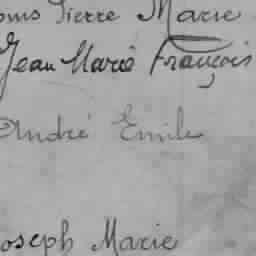 Pierre Marie
Jean Marie François
André Emile
Joseph Marie